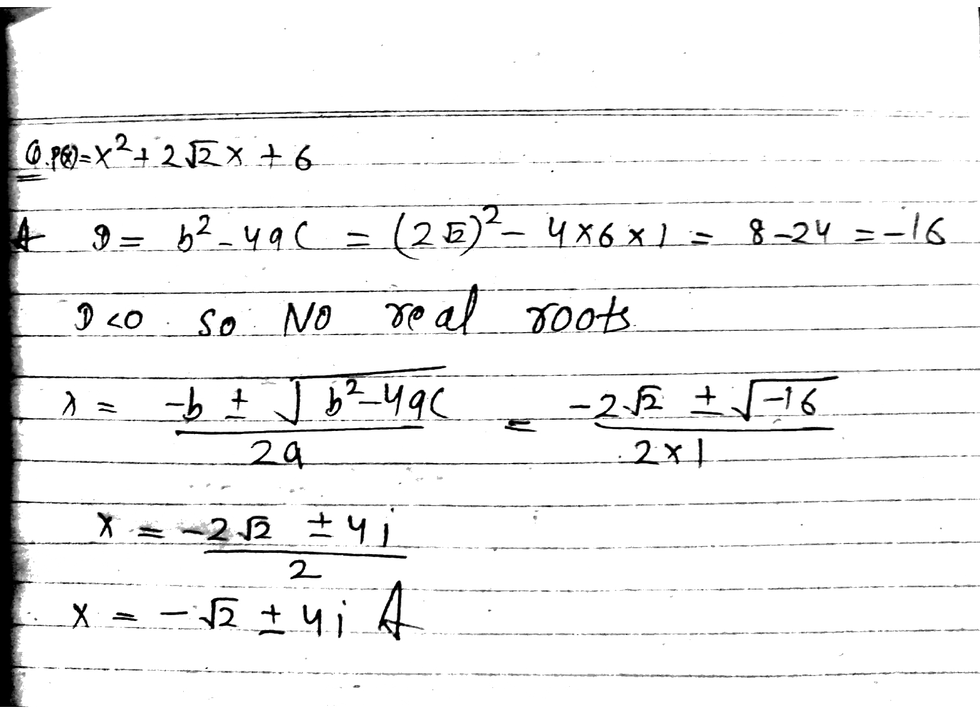 Q. P(x)=x²+2√2x+6
A D = b²-4ac = (2√2)²- 4×6×1 = 8-24 =-16
D<0 so No real roots
x = -b ± √b²-4ac / 2a = -2√2 ± √-16 / 2×1
x = -2√2 ± 4i / 2
x = -√2 ± 4i A